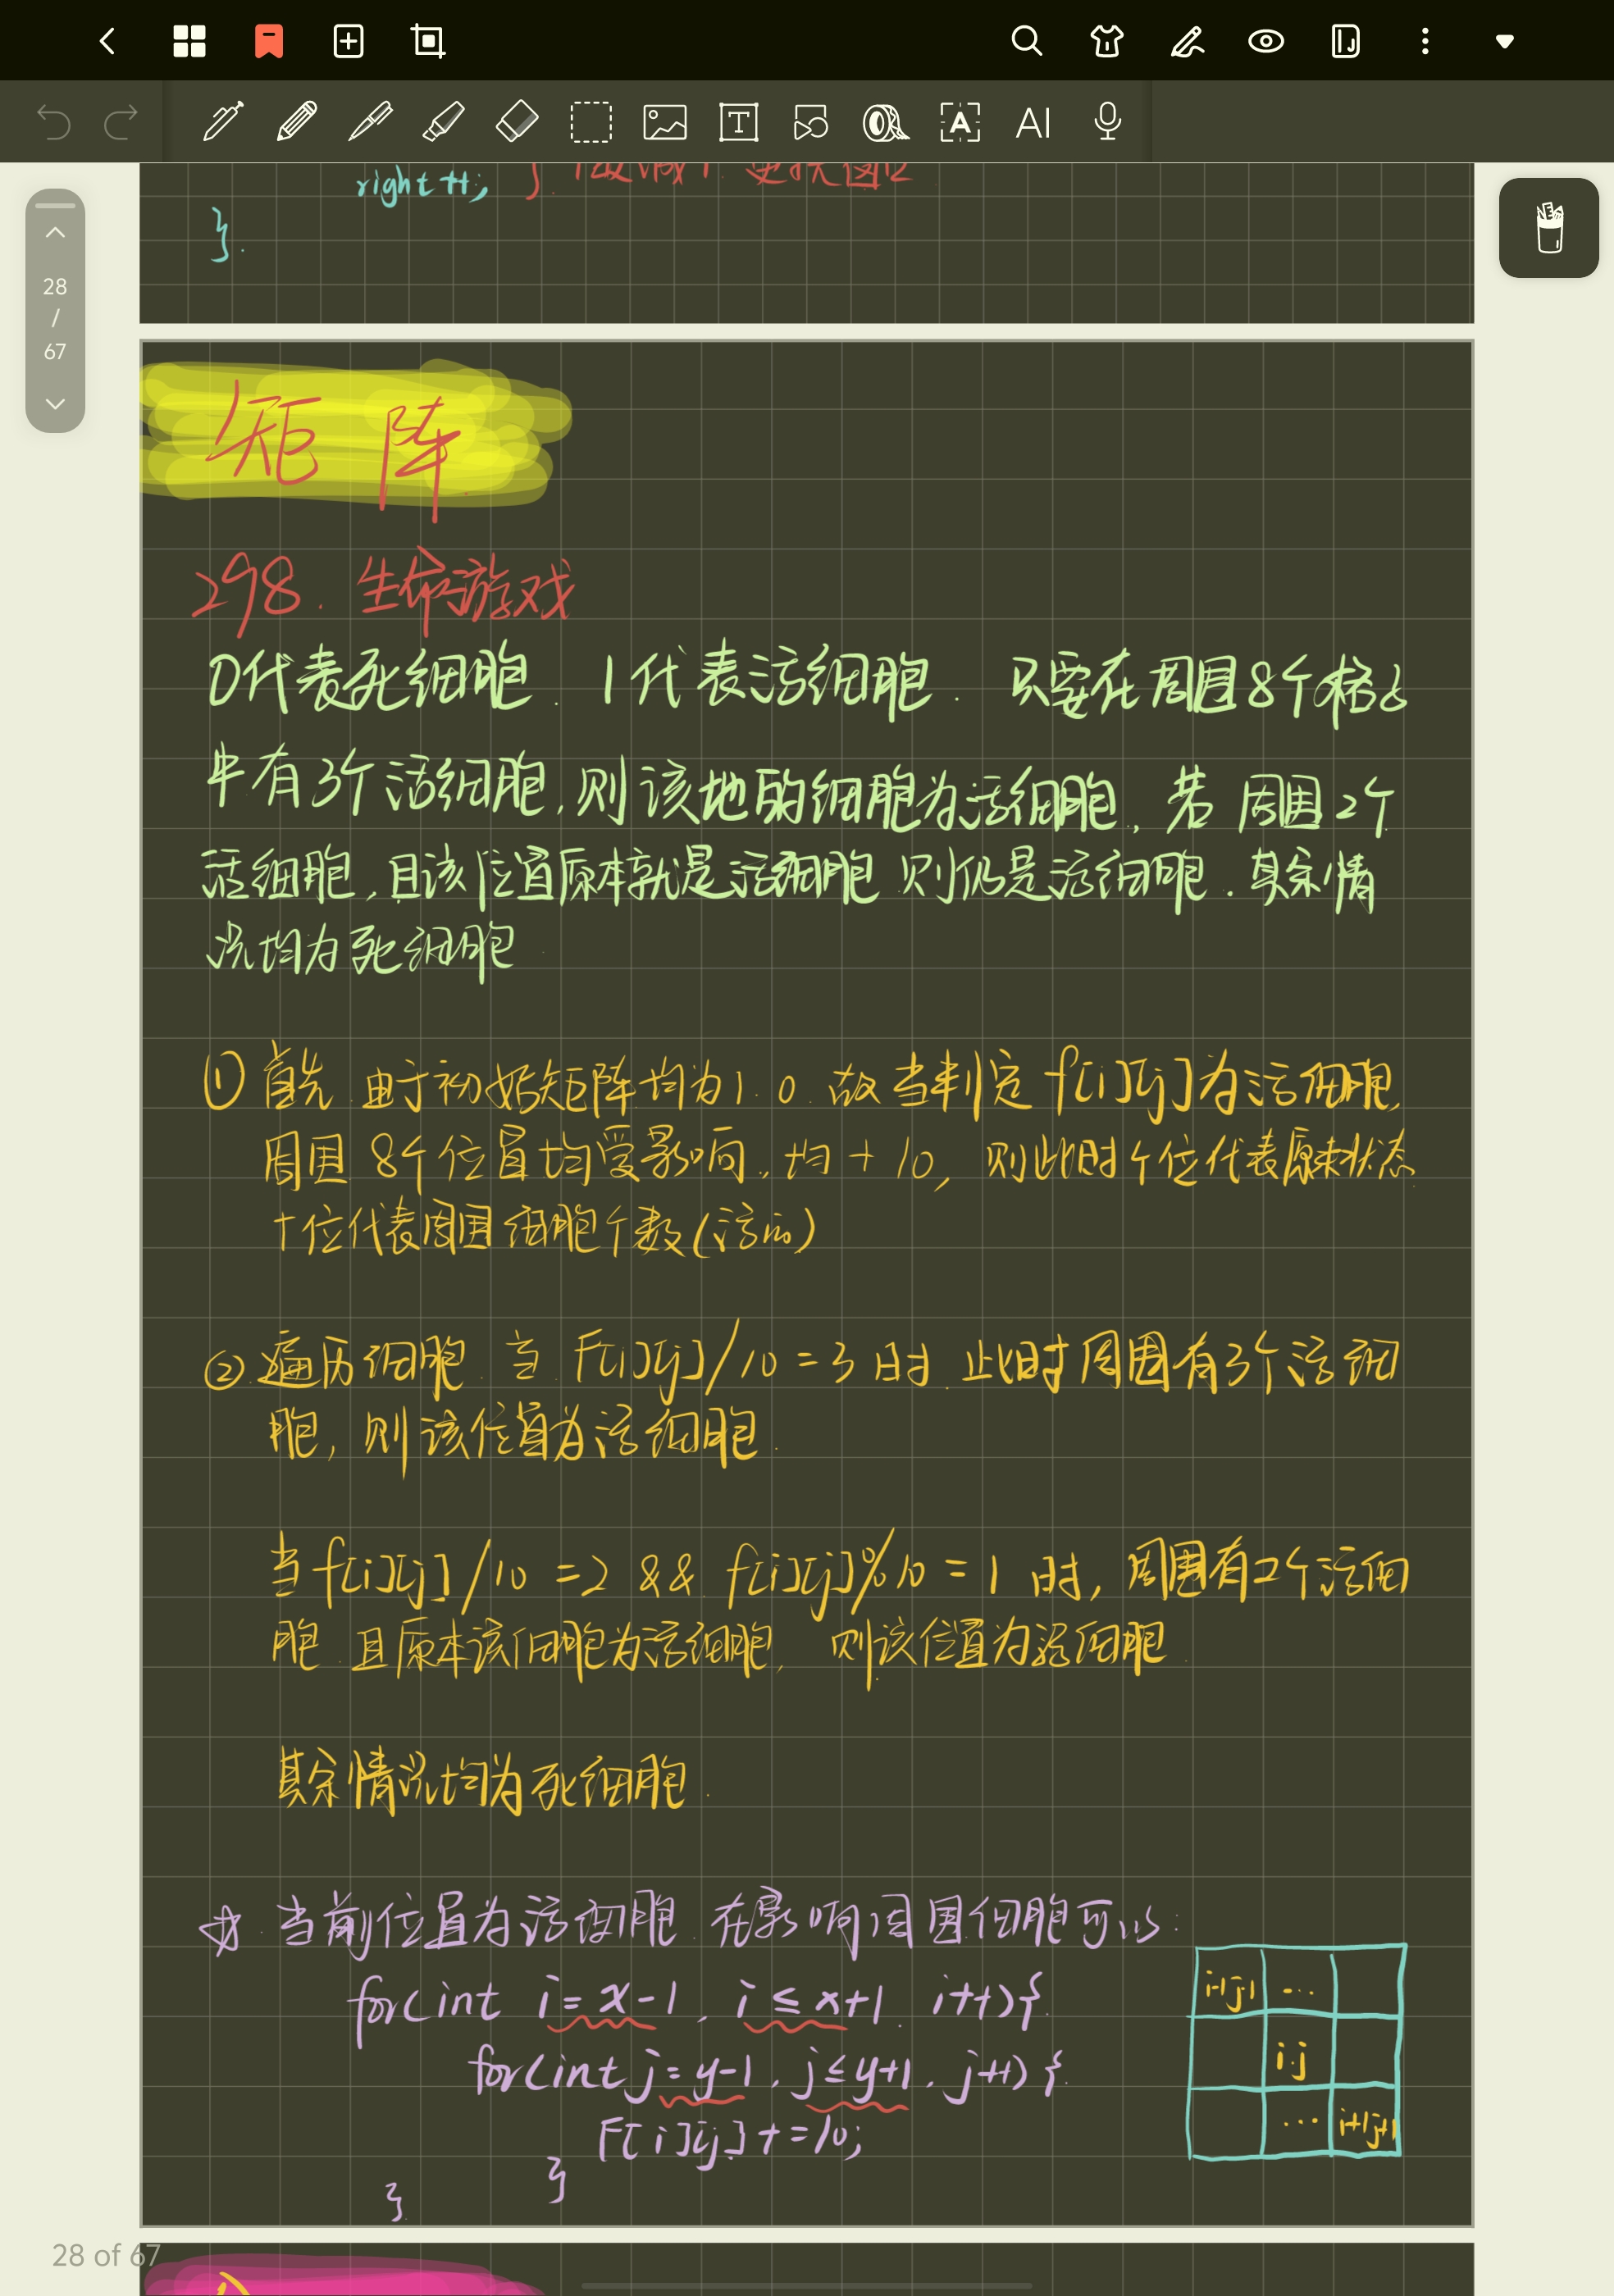 right++;
}
28
/
67
矩阵
298. 生命游戏
0代表死细胞. 1代表活细胞. 只要在周围8个格子
中有3个活细胞,则该地的细胞为活细胞,若周围2个
活细胞,且该位置原本就是活细胞 则仍是活细胞.其余情
况均为死细胞
① 首先.由于初始矩阵均为1.0.故当判定f[i][j]为活细胞,
周围8个位置均受影响,均+10,则此时个位代表原来状态
十位代表周围细胞个数(活的)
② 遍历细胞.当F[i][j]/10=3时.此时周围有3个活细
胞,则该位置为活细胞.
当f[i][j]/10=2 && f[i][j]%10=1时,周围有2个活细
胞.且原本该细胞为活细胞,则该位置为活细胞.
其余情况均为死细胞.
☆.当前位置为活细胞.在影响周围细胞可以:
for(int i=x-1, i≤x+1, i++){
i-1j-1 ...
for(int j=y-1, j≤y+1, j++){
i.j
F[i][j]+=10;
... i+1j+1
}
}
28 of 67